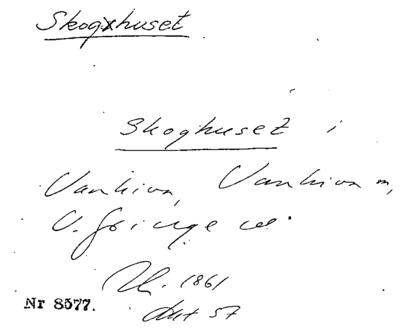 Skoghuset
Skoghuset i
Vankiva, Vankiva sn,
V. Göinge hd.
1861
Nr 8577.